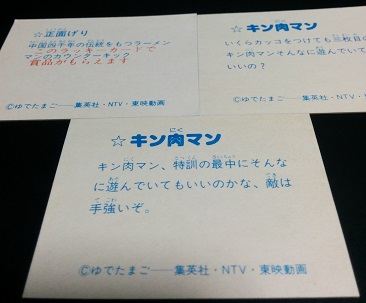 ☆正面げり
中国四千年の伝統をもつラーメン
このラッキーカードで
マンのカウンターキック
賞品がもらえます
©ゆでたまご——集英社・NTV・東映動画
☆キン肉マン
いくらカッコをつけても三枚目の
キン肉マンそんなに遊んでいて
いいの？
©ゆでたまご——集英社・NTV・東映動画
☆キン肉マン
にく
キン肉マン、特訓の最中にそんな
に遊んでいてもいいのかな、敵は
手強いぞ。
©ゆでたまご——集英社・NTV・東映動画